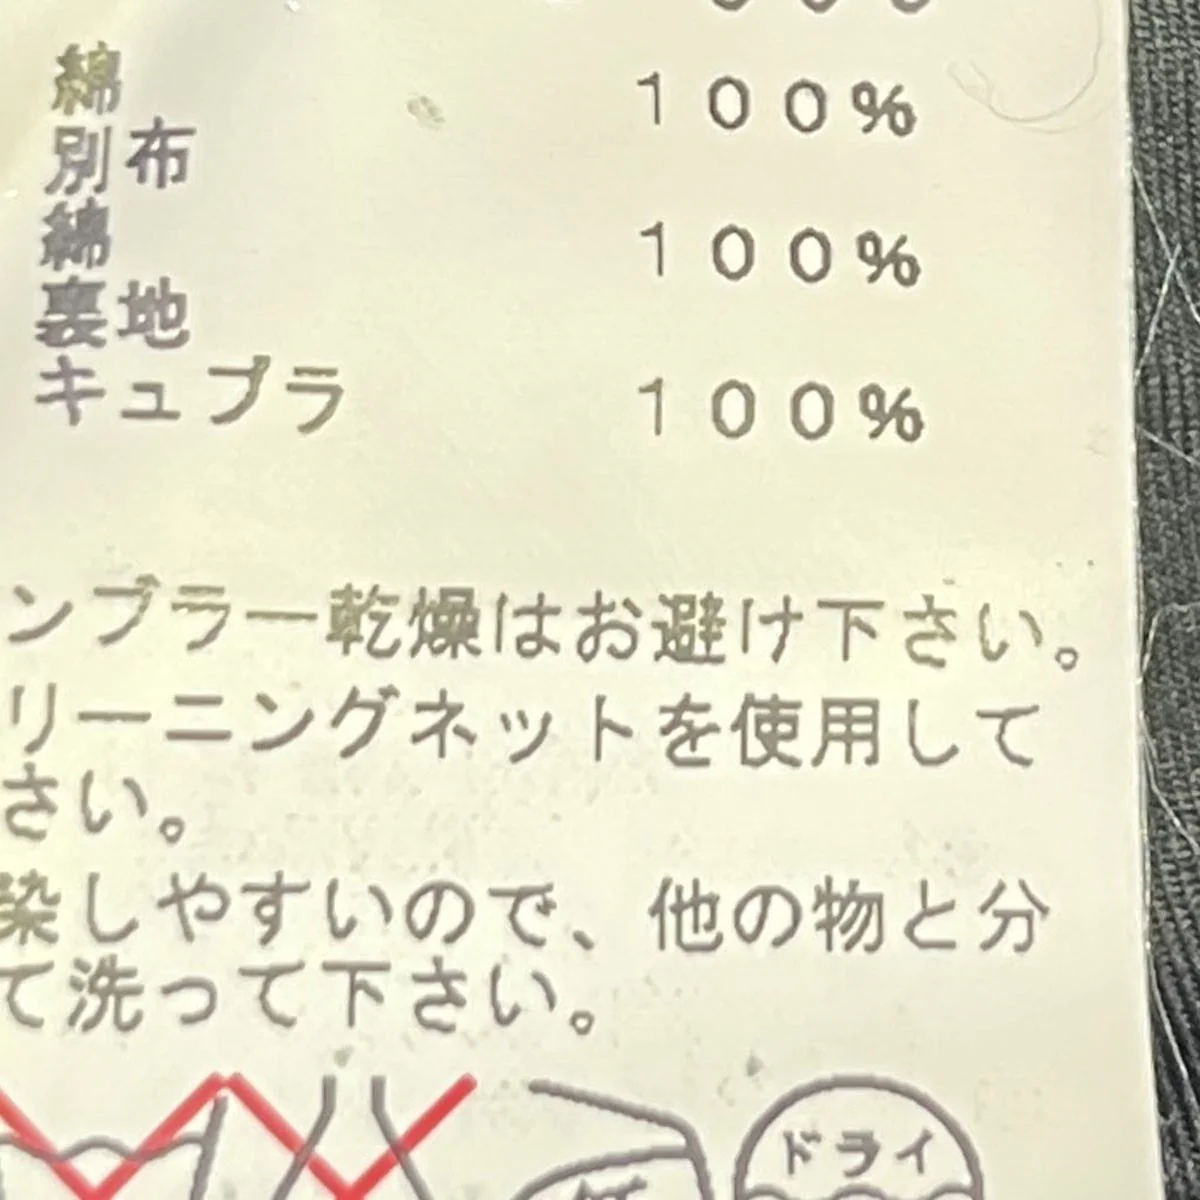 綿 100%
別布
綿 100%
裏地
キュプラ 100%
ンブラー乾燥はお避け下さい。
リーニングネットを使用して
さい。
染しやすいので、他の物と分
て洗って下さい。
ドライ